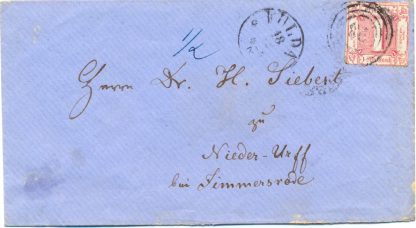 FULDA
1/2
Herrn Dr. H. Siebert
zu
Nieder-Urff
bei Zimmersrode